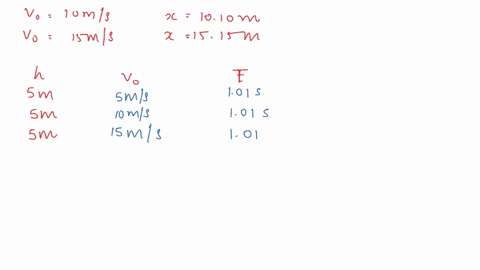 V₀ = 10m/s x = 10.10m
V₀ = 15m/s x = 15.15m
h V₀ t
5m 5m/s 1.01 s
5m 10m/s 1.01 s
5m 15m/s 1.01